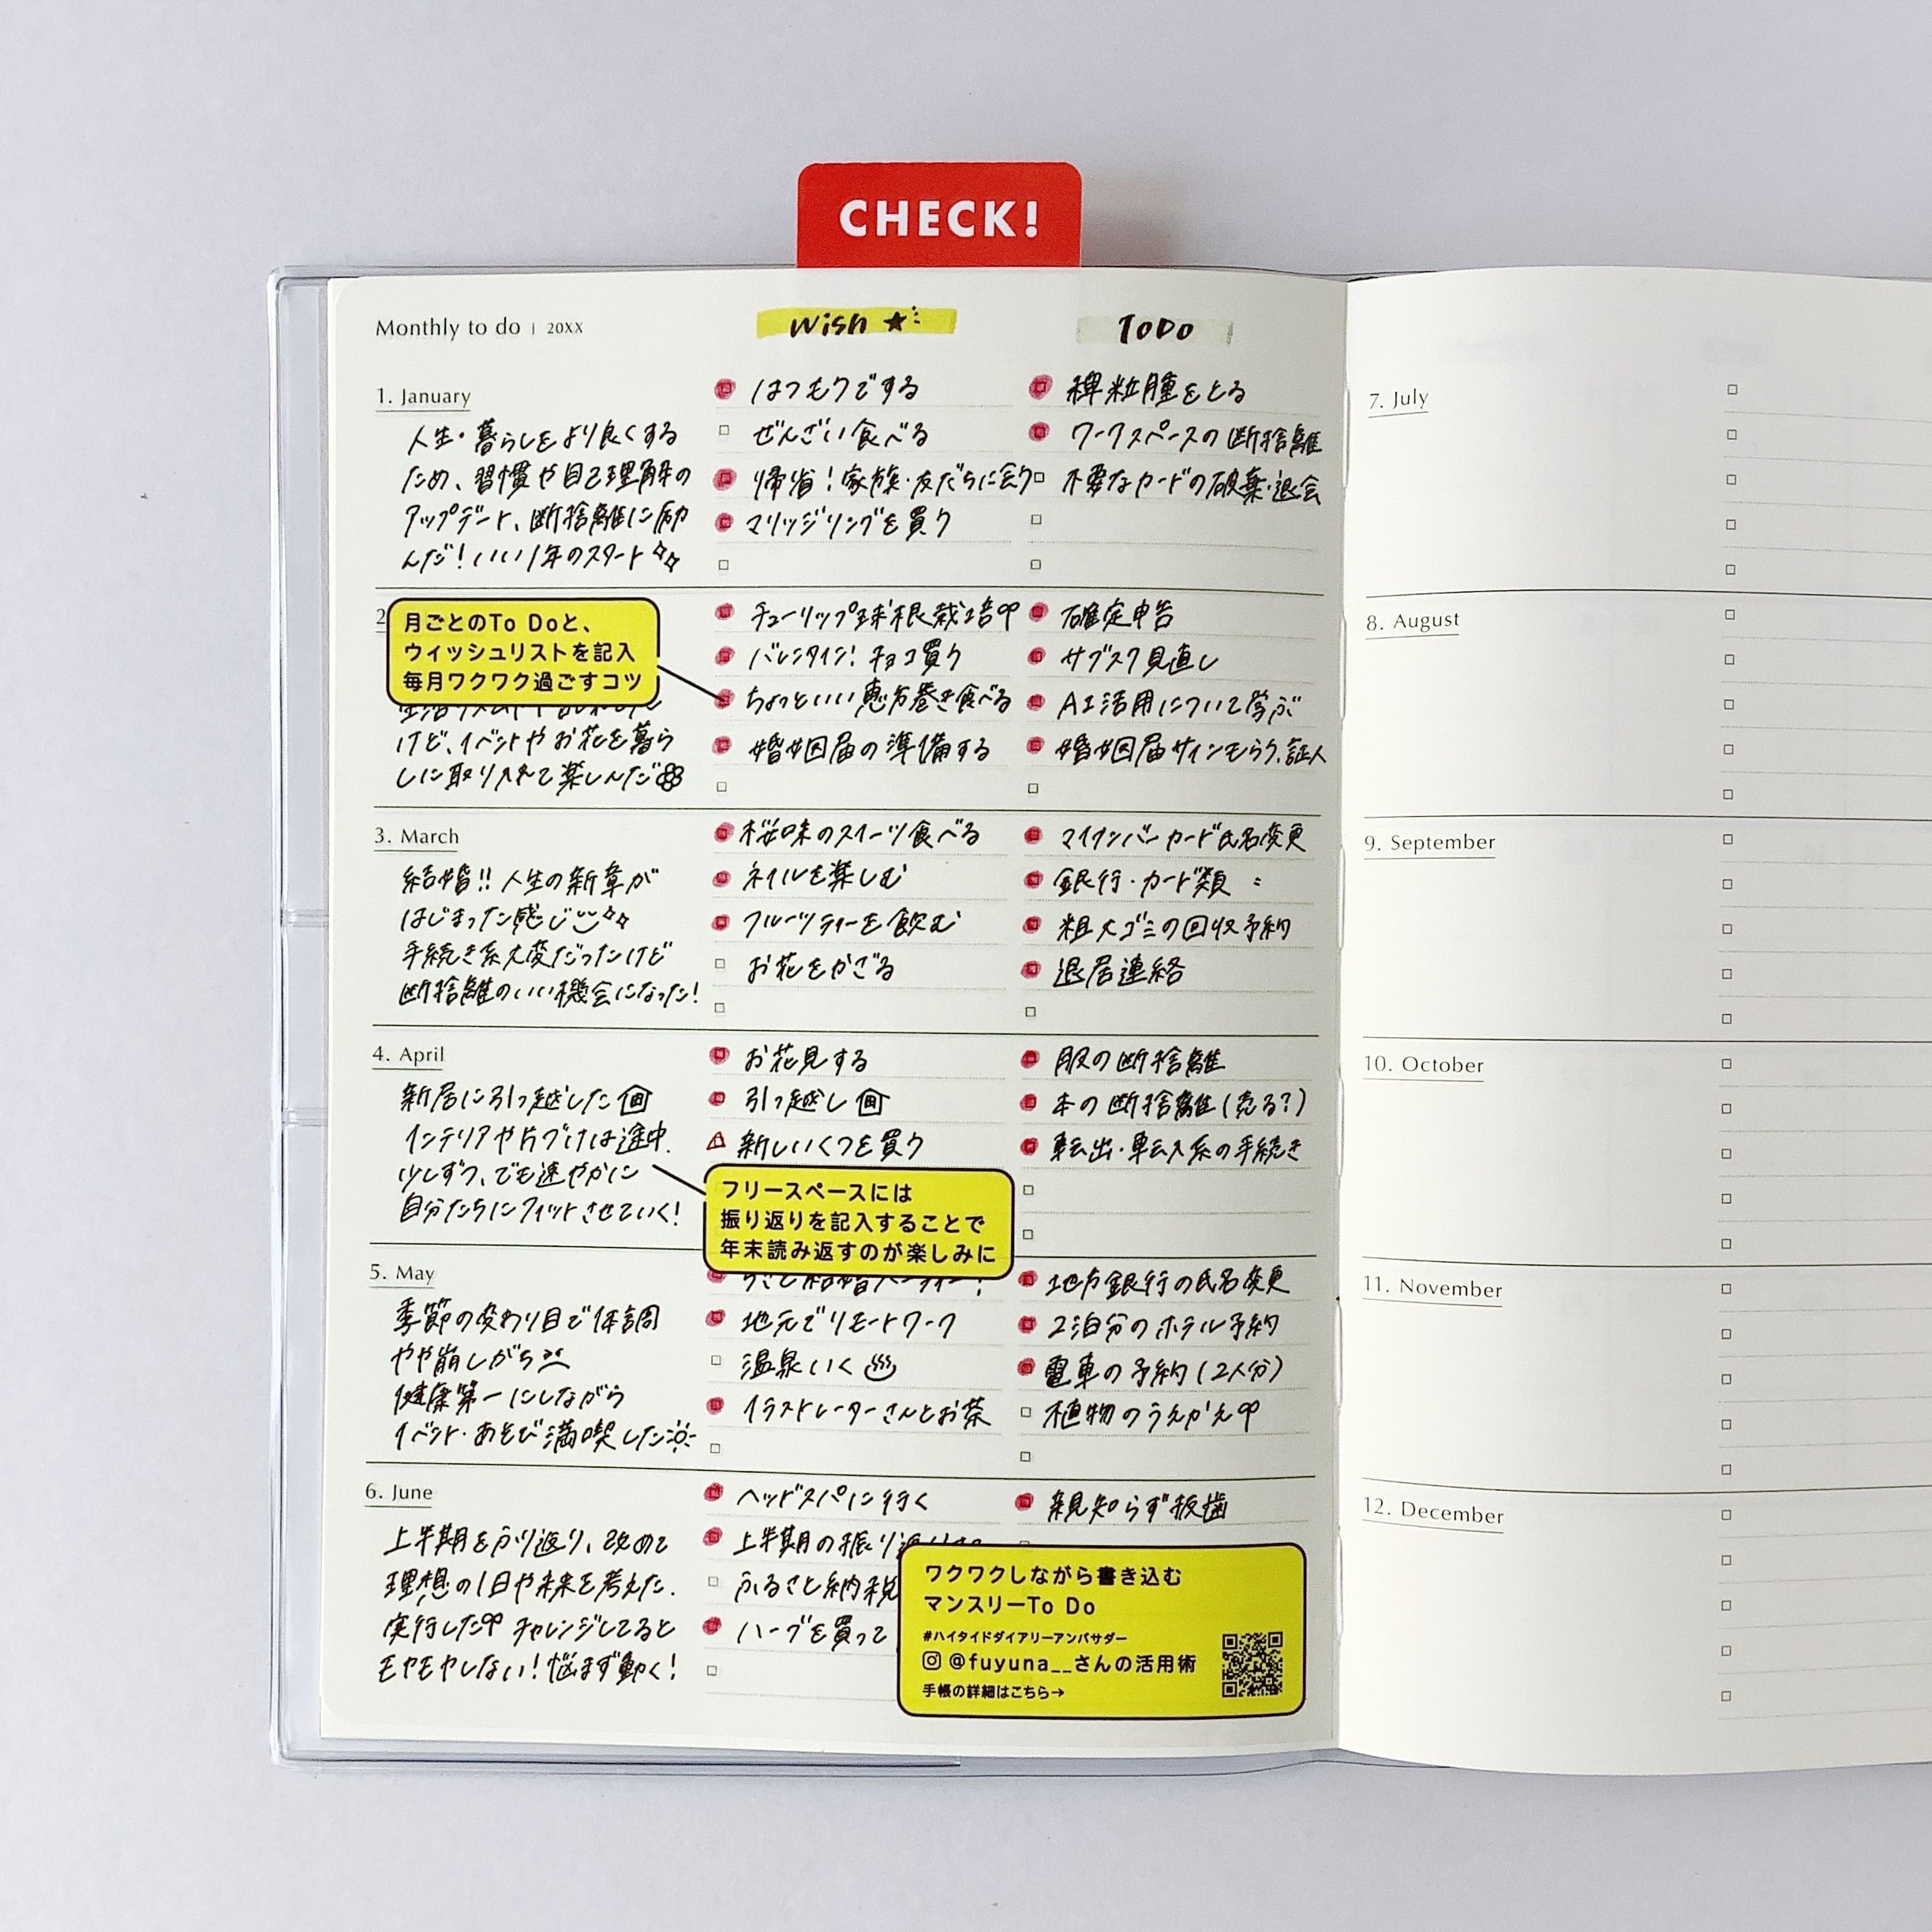 CHECK!
Monthly to do | 20XX
Wish ★
ToDo
1. January
人生・暮らしをより良くする
ため、習慣や自己理解の
アップデート、断捨離に励
んだ！いい1年のスタート
はつもうでする
ぜんざい食べる
帰省！家族・友だちに会う
マリッジリングを買う
稗粒腫をとる
ワークスペースの断捨離
不要なカードの破棄・退会
2
月ごとのTo Doと、
ウィッシュリストを記入
毎月ワクワク過ごすコツ
けど、イベントやお花を暮ら
しに取り入れて楽しんだ
チューリップ球根栽培
バレンタイン！チョコ買う
ちょっといい恵方巻き食べる
婚姻届の準備する
確定申告
サブスク見直し
AI活用について学ぶ
婚姻届サインもらう、証人
3. March
結婚!! 人生の新章が
はじまった感じ
手続き系大変だったけど
断捨離のいい機会になった！
桜味のスイーツ食べる
ネイルを楽しむ
フルーツティーを飲む
お花をかざる
マイナンバーカード氏名変更
銀行・カード類 〃
粗大ゴミの回収予約
退居連絡
4. April
新居に引っ越した
インテリアや片づけは途中.
少しずつ、でも速やかに
自分たちにフィットさせていく！
お花見する
引っ越し
新しいくつを買う
服の断捨離
本の断捨離(売る?)
転出・転入系の手続き
フリースペースには
振り返りを記入することで
年末読み返すのが楽しみに
5. May
季節の変わり目で体調
やや崩しがち
健康第一にしながら
イベント・あそび満喫した
地元でリモートワーク
温泉いく
イラストレーターさんとお茶
地方銀行の氏名変更
2泊分のホテル予約
電車の予約(2人分)
植物のうえかえ
6. June
上半期をふり返り、改めて
理想の1日や未来を考えた.
実行した チャレンジしてると
モヤモヤしない！悩まず動く！
ヘッドスパに行く
上半期の振り返り
ふるさと納税
ハーブを買って
親知らず抜歯
ワクワクしながら書き込む
マンスリーTo Do
#ハイタイドダイアリーアンバサダー
@fuyuna__さんの活用術
手帳の詳細はこちら→
7. July
8. August
9. September
10. October
11. November
12. December